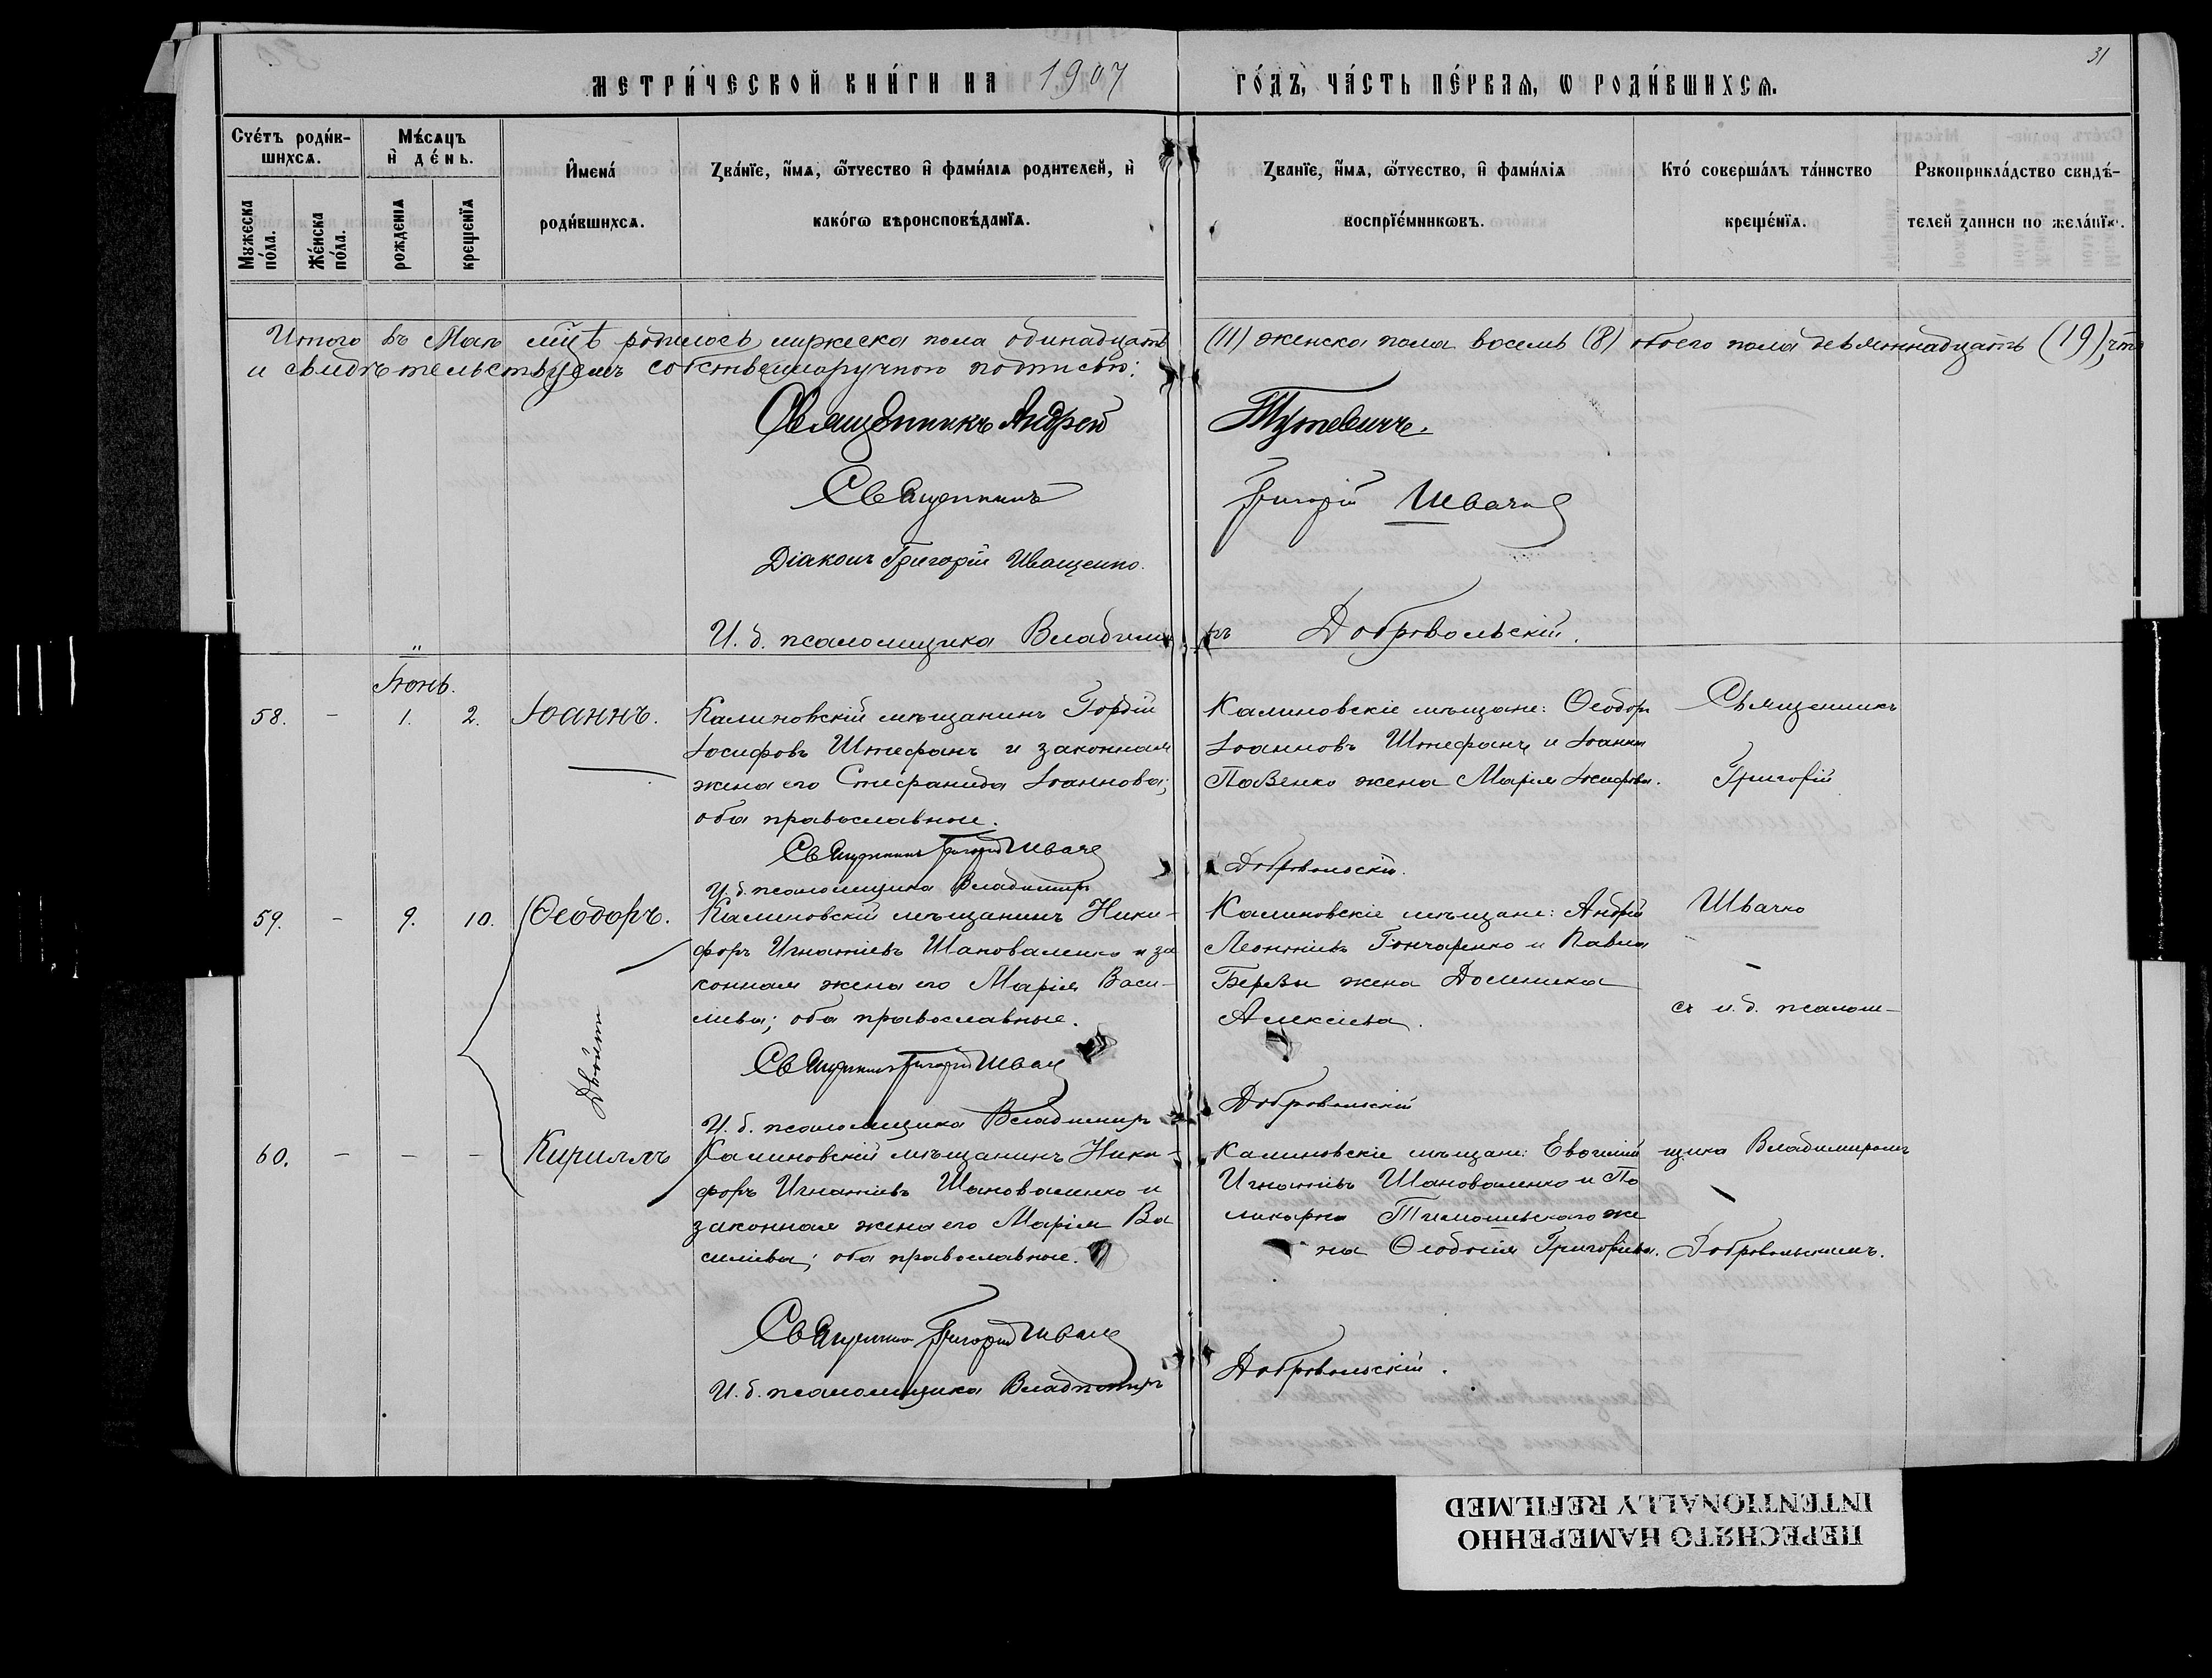 31
МЕТРИ́ЧЕСКОЙ КНИ́ГИ НА 1907 ГО́ДЪ, ЧА́СТЬ ПЕ́РВАЯ, Ѡ РОДИ́ВШИХСѦ.
Счéтъ роди́в-
шихсѧ.
Мѣ́сѧцъ
и҆ де́нь.
И҆мена́
роди́вшихсѧ.
Зва́нїе, и҆́мѧ, ѻ҆́тчество и҆ фами́лїѧ родителей, и҆
како́гѡ вѣроисповѣ́данїѧ.
Зва́нїе, и҆́мѧ, ѻ҆́тчество, и҆ фами́лїѧ
воспрїе́мникѡвъ.
Кто́ соверша́лъ та́инство
креще́нїѧ.
Рꙋкоприкла́дство свидѣ́-
телей записи по жела́нїю.
Мꙋжеска
по́ла.
Же́нска
по́ла.
рожденїѧ
крещенїѧ
Итого въ Маѣ мц҃ѣ родилось мужеска пола одинадцать (11) женска пола восемь (8) обоего пола девятнадцать (19), что
и свидѣтельствуемъ собственноручною подписью:
Священникъ Андрей Тутевичъ.
Священникъ Григорій Швачко
Діаконъ Григорій Иващенко.
И. д. псаломщика Владиміръ Добровольскій.
Іюнь.
58. - 1. 2. Іоаннъ. Калиновскій мѣщанинъ Гордій
Іосифовъ Штефанъ и законная
жена его Стефанида Іоаннова;
оба православные.
Калиновскіе мѣщане: Ѳеодоръ
Іоанновъ Штефанъ и Іоанна
Павенко жена Марія Іосифова.
Священникъ
Григорій
Священникъ Григорій Швачко
И. д. псаломщика Владиміръ Добровольскій.
59. - 9. 10. Ѳеодоръ. Калиновскій мѣщанинъ Ники-
форъ Игнатіевъ Шаповаленко и за
конная жена его Марія Васи-
ліева; оба православные.
Калиновскіе мѣщане: Андрей
Леонтіевъ Гончаренко и Павла
Березы жена Домника
Алексіева.
Швачко
съ и. д. псалом-
Двойни
Священникъ Григорій Швачко
И. д. псаломщика Владиміръ Добровольскій
60. - - - Кириллъ Калиновскій мѣщанинъ Ники-
форъ Игнатіевъ Шаповаленко и
законная жена его Марія Ва
силіева; оба православные.
Калиновскіе мѣщане: Евфимій
Игнатіевъ Шаповаленко и По
ликарпа Тимошевского же
на Ѳеодосія Григоріева.
щика Владиміромъ
Добровольскимъ.
Священникъ Григорій Швачко
И. д. псаломщика Владиміръ Добровольскій.
ПЕРЕСНЯТО НАМЕРЕННО
INTENTIONALLY REFILMED